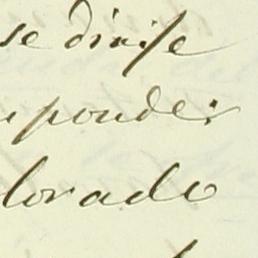 se divise
ponde:
lorado